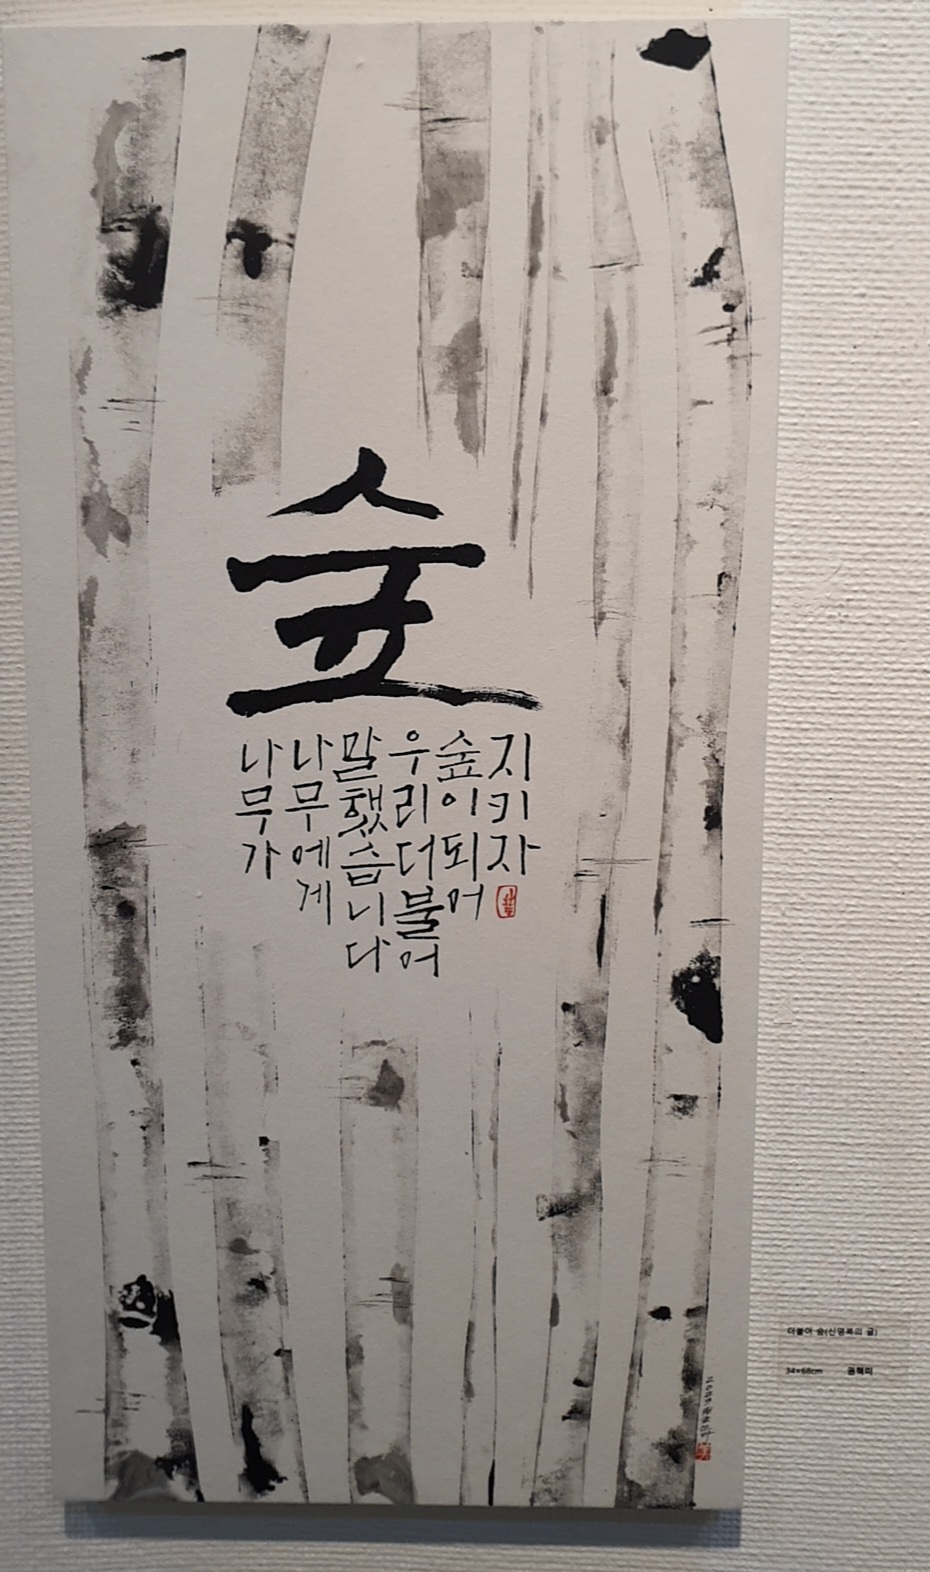 숲
나무가
나무에게
말했습니다
우리더불어
숲이되어
지키자
더불어 숲(신영복의 글)
34×68cm